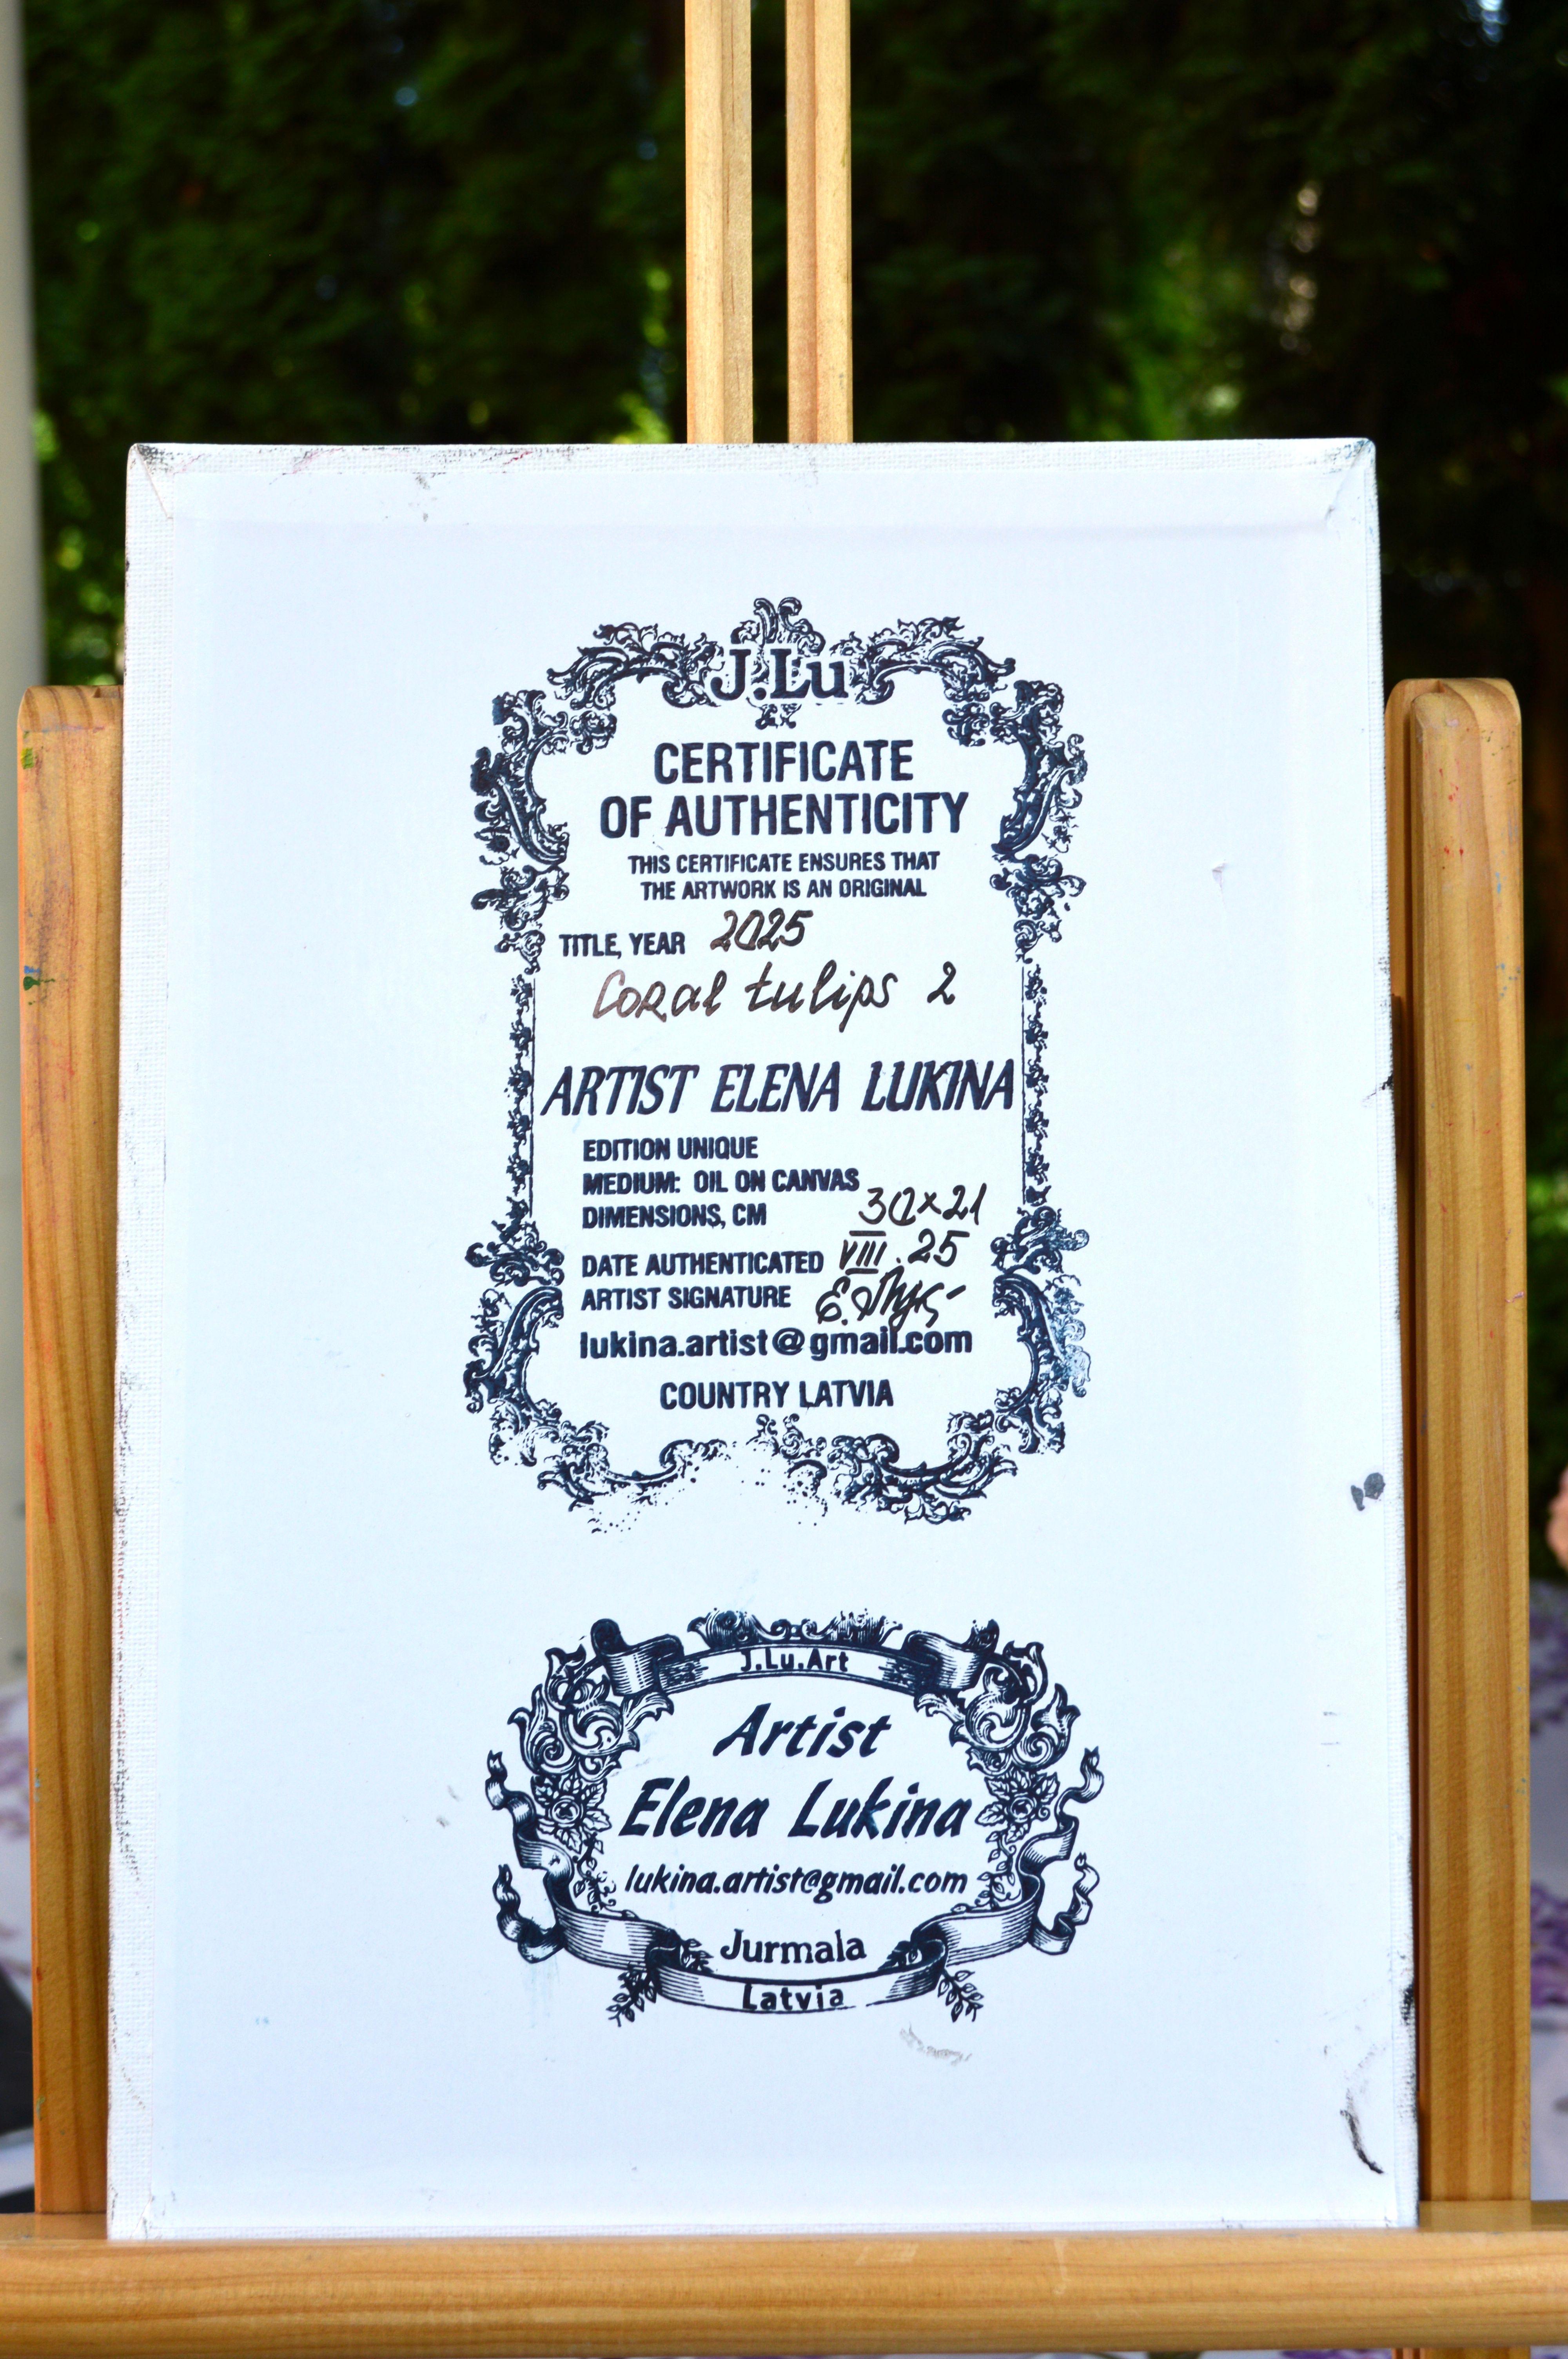 J.Lu
CERTIFICATE
OF AUTHENTICITY
THIS CERTIFICATE ENSURES THAT
THE ARTWORK IS AN ORIGINAL
TITLE, YEAR 2025
Coral tulips 2
ARTIST ELENA LUKINA
EDITION UNIQUE
MEDIUM: OIL ON CANVAS
DIMENSIONS, CM 30x21
DATE AUTHENTICATED VIII.25
ARTIST SIGNATURE
lukina.artist@gmail.com
COUNTRY LATVIA
J.Lu.Art
Artist
Elena Lukina
lukina.artist@gmail.com
Jurmala
Latvia